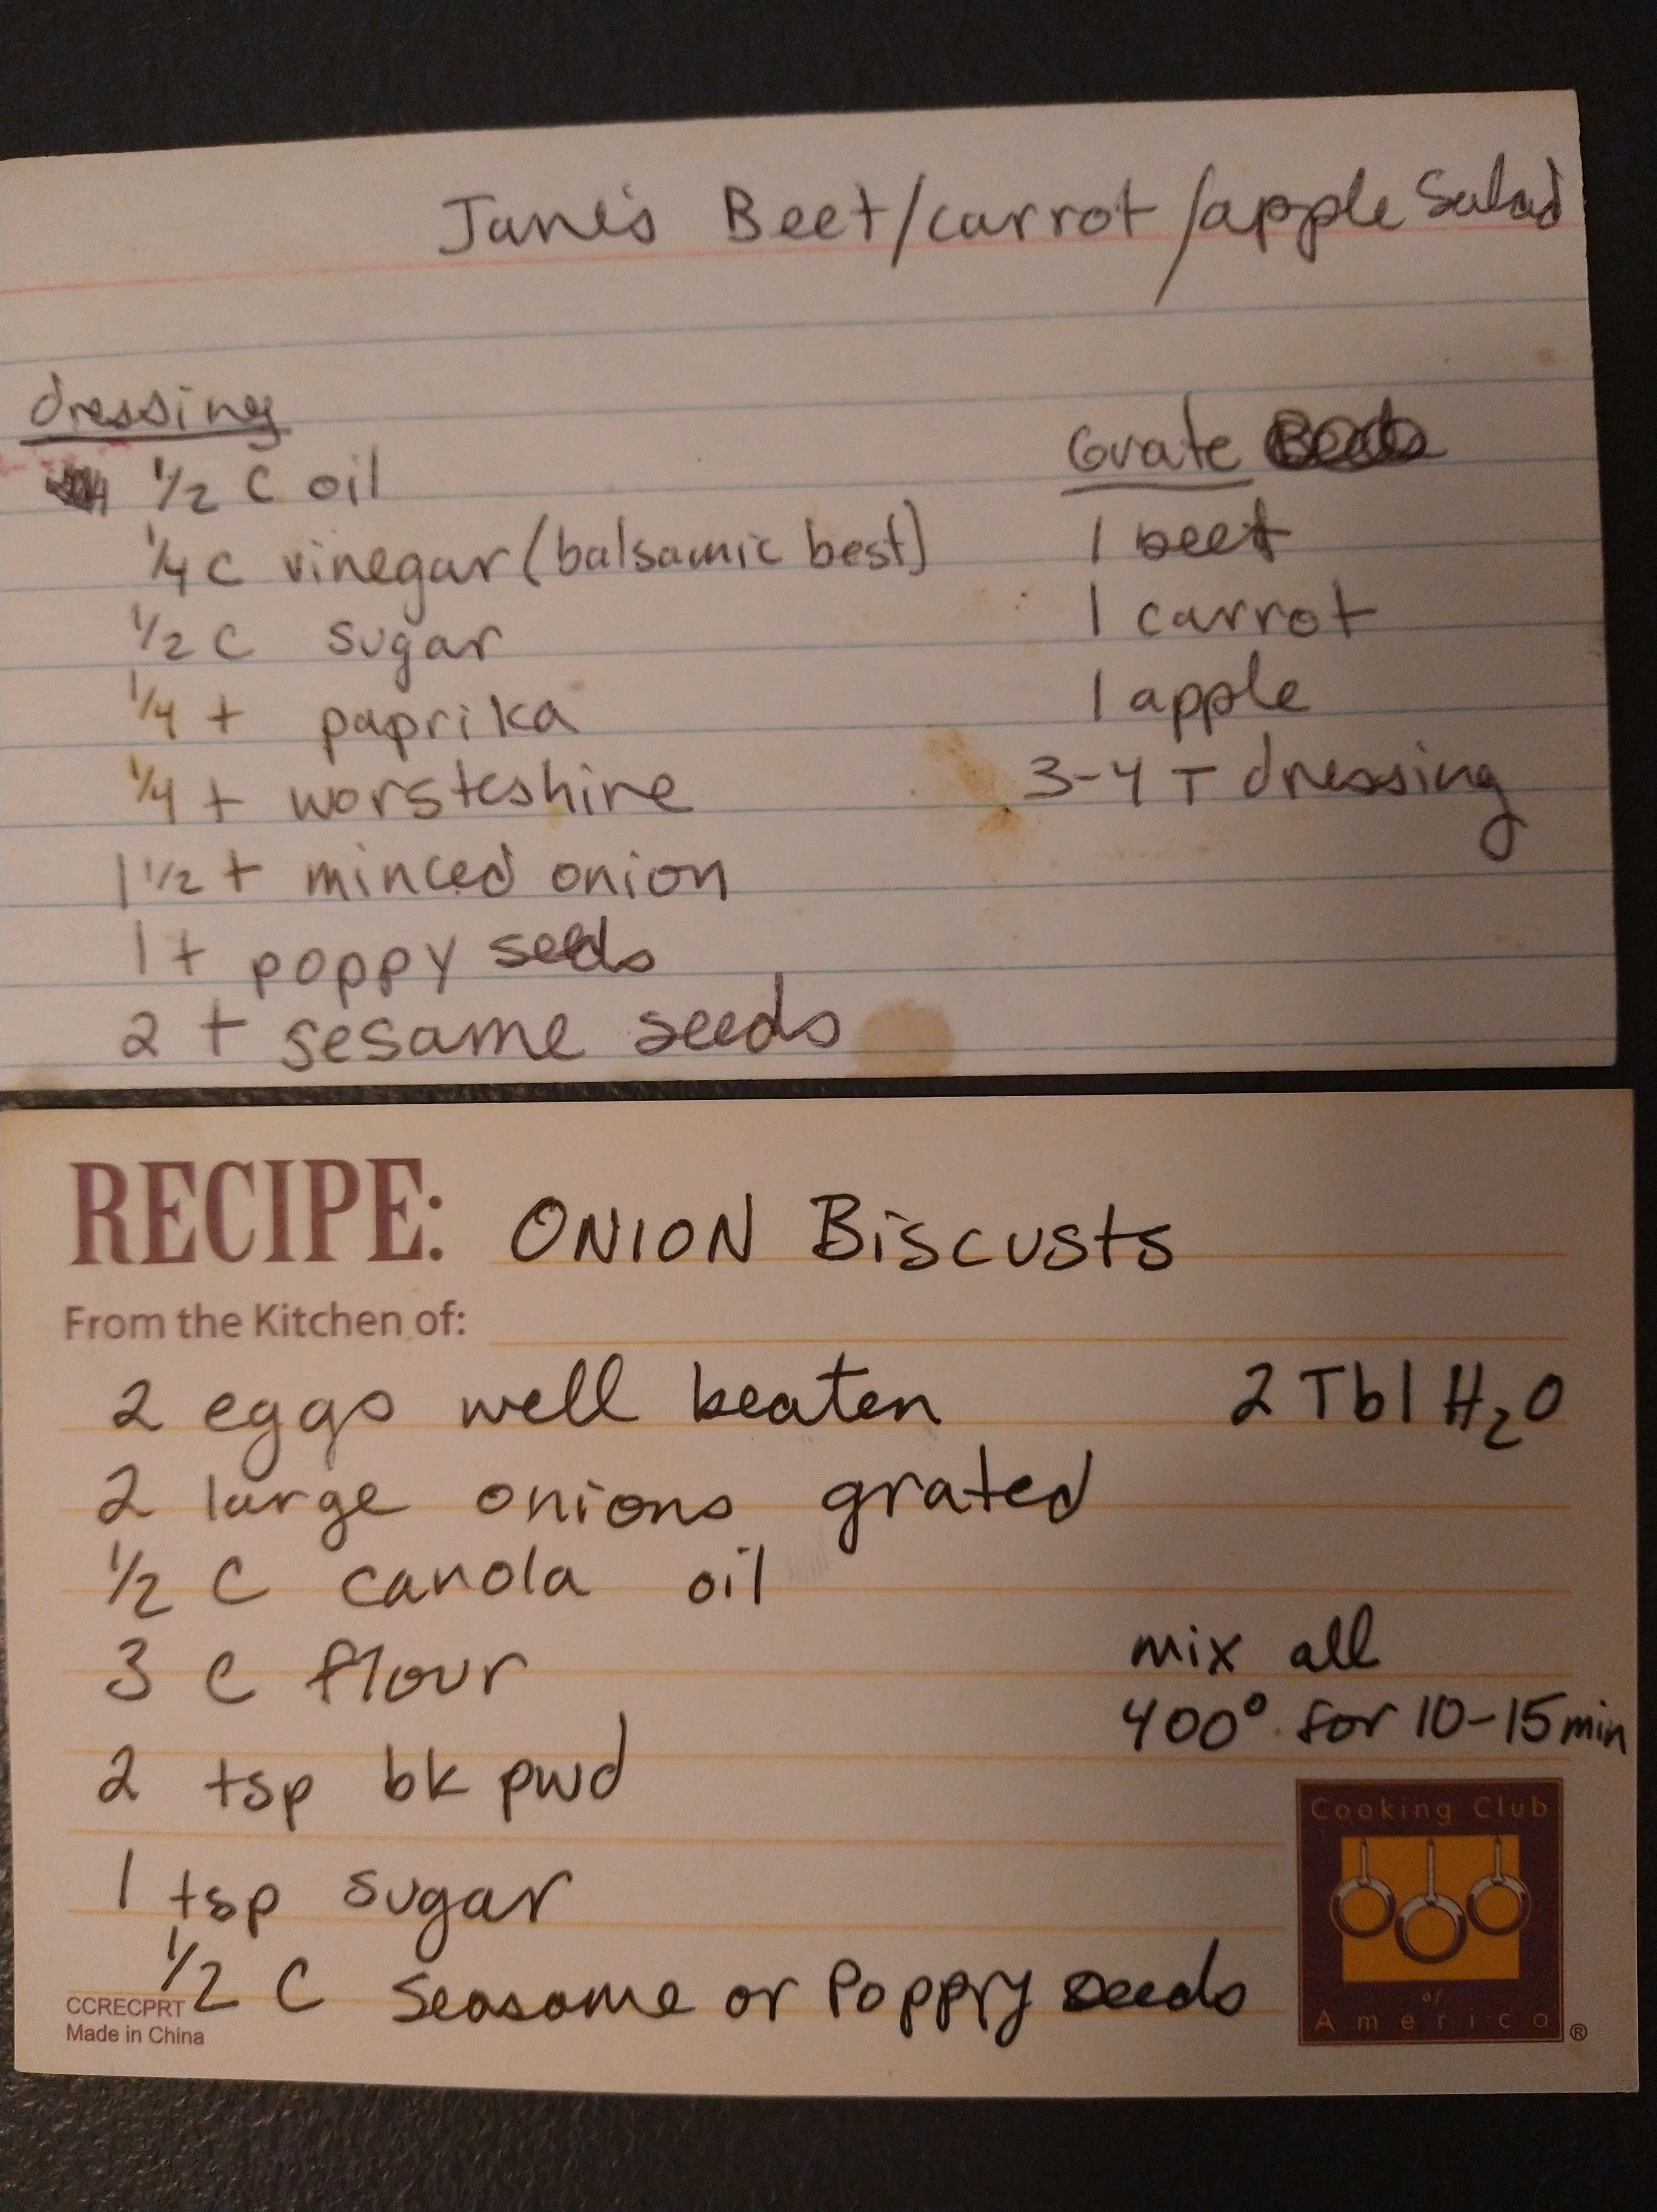 Jane's Beet/carrot/apple Salad
dressing
1/2 C oil
1/4 C vinegar (balsamic best)
1/2 C sugar
1/4 t paprika
1/4 t worsteshire
1 1/2 t minced onion
1 t poppy seeds
2 t sesame seeds
Grate
1 beet
1 carrot
1 apple
3-4 T dressing
RECIPE: ONION Biscusts
From the Kitchen of:
2 eggs well beaten
2 Tbl H₂O
2 large onions grated
1/2 C canola oil
3 C flour
2 tsp bk pwd
1 tsp sugar
1/2 C Seasame or Poppry seeds
mix all
400° for 10-15 min
CCRECPRT
Made in China
Cooking Club
of
America®